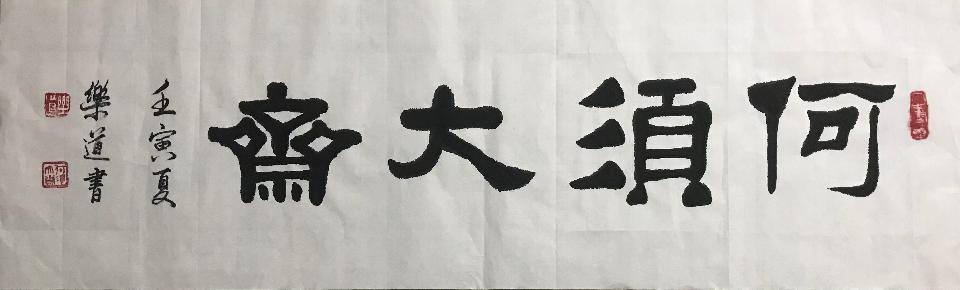 何須大齋
壬寅夏
樂道書